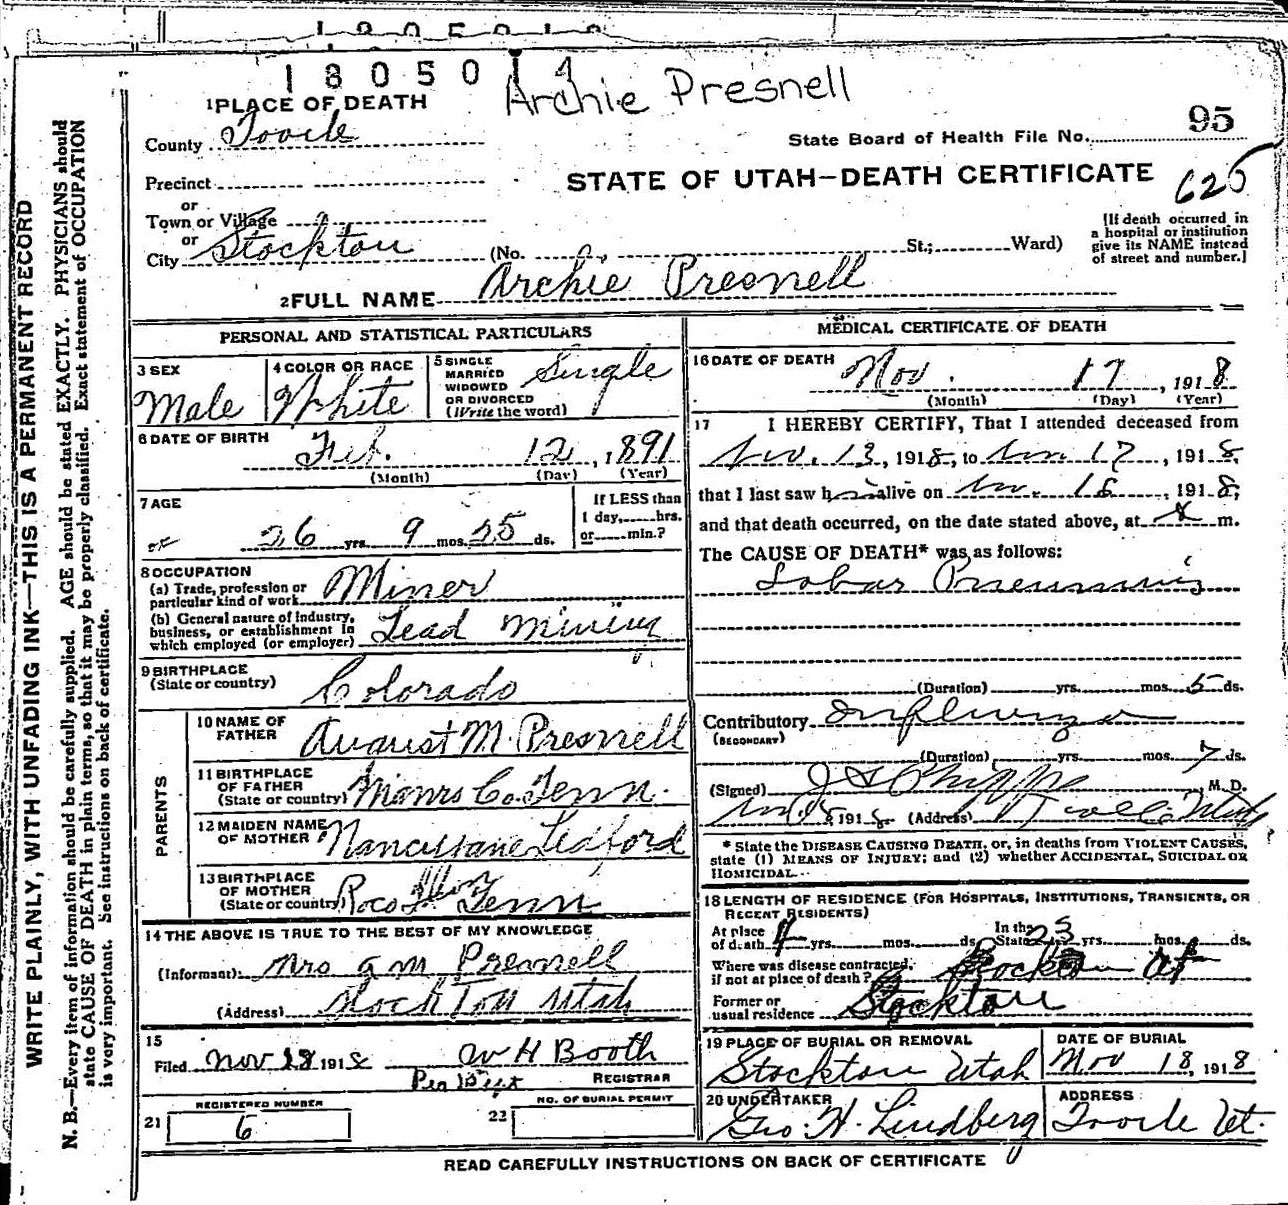 1805014
Archie Presnell
1 PLACE OF DEATH
County Tooele
State Board of Health File No. 95
Precinct
STATE OF UTAH—DEATH CERTIFICATE
625
or
Town or Village
or
City Stockton
(No. St.; Ward)
[If death occurred in
a hospital or institution
give its NAME instead
of street and number.]
2 FULL NAME Archie Presnell
PERSONAL AND STATISTICAL PARTICULARS
3 SEX
Male
4 COLOR OR RACE
White
5 SINGLE
MARRIED
WIDOWED
OR DIVORCED
(Write the word)
Single
6 DATE OF BIRTH
Feb. 12, 1891
(Month) (Day) (Year)
7 AGE
26 yrs. 9 mos. 25 ds.
If LESS than
1 day, hrs.
or min.?
8 OCCUPATION
(a) Trade, profession or
particular kind of work Miner
(b) General nature of industry,
business, or establishment in
which employed (or employer) Lead Mining
9 BIRTHPLACE
(State or country) Colorado
PARENTS
10 NAME OF
FATHER August M. Presnell
11 BIRTHPLACE
OF FATHER
(State or country) Monro Co. Tenn.
12 MAIDEN NAME
OF MOTHER Nancy Jane Ledford
13 BIRTHPLACE
OF MOTHER
(State or country) Tenn
14 THE ABOVE IS TRUE TO THE BEST OF MY KNOWLEDGE
(Informant) Mrs a m Presnell
(Address) Stockton Utah
15
Filed Nov 18 1918 W H Booth
REGISTRAR
REGISTERED NUMBER
21 6
NO. OF BURIAL PERMIT
22
MEDICAL CERTIFICATE OF DEATH
16 DATE OF DEATH
Nov. 17, 1918
(Month) (Day) (Year)
17 I HEREBY CERTIFY, That I attended deceased from
Nov. 13, 1918, to Nov 17, 1918,
that I last saw h alive on Nov. 16, 1918,
and that death occurred, on the date stated above, at m.
The CAUSE OF DEATH* was as follows:
Lobar Pneumonia
(Duration) yrs. mos. 5 ds.
Contributory Influenza
(SECONDARY)
(Duration) yrs. mos. 7 ds.
(Signed) Phipps, M. D.
1918 (Address) Tooele Utah
* State the DISEASE CAUSING DEATH, or, in deaths from VIOLENT CAUSES,
state (1) MEANS OF INJURY; and (2) whether ACCIDENTAL, SUICIDAL OR
HOMICIDAL.
18 LENGTH OF RESIDENCE (FOR HOSPITALS, INSTITUTIONS, TRANSIENTS, OR
RECENT RESIDENTS)
At place
of death 4 yrs. mos. ds.
In the
State 23 yrs. mos. ds.
Where was disease contracted,
if not at place of death? Stockton Ut
Former or
usual residence Stockton
19 PLACE OF BURIAL OR REMOVAL
Stockton Utah
DATE OF BURIAL
Nov 18, 1918
20 UNDERTAKER
Geo. H. Lindberg
ADDRESS
Tooele Ut.
READ CAREFULLY INSTRUCTIONS ON BACK OF CERTIFICATE
WRITE PLAINLY, WITH UNFADING INK—THIS IS A PERMANENT RECORD
N. B.—Every item of information should be carefully supplied. AGE should be stated EXACTLY. PHYSICIANS should
state CAUSE OF DEATH in plain terms, so that it may be properly classified. Exact statement of OCCUPATION
is very important. See instructions on back of certificate.